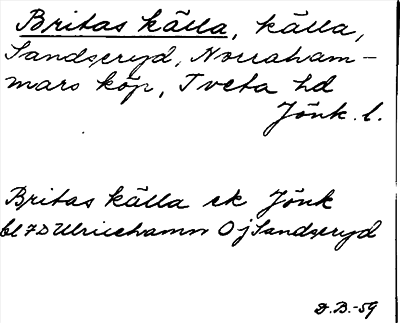 Britas källa, källa,
Sandseryd, Norraham-
mars köp, Tveta hd
Jönk. l.
Britas källa ek Jönk
bl 7D Ulricehamn Oj Sandseryd
D.B.-59